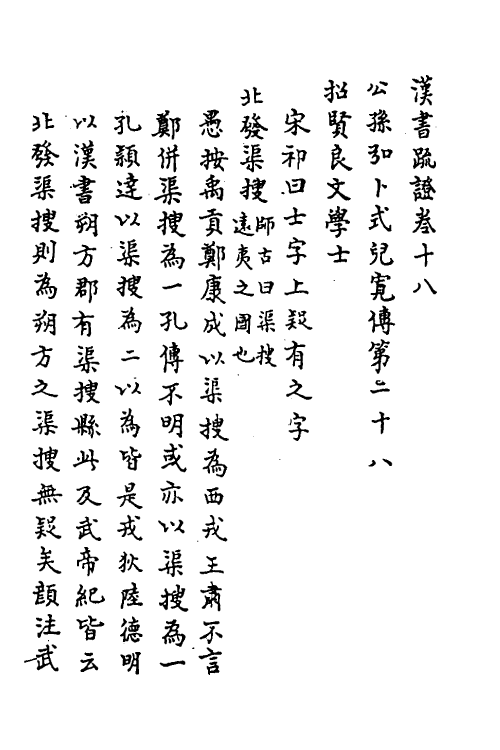 漢書疏證卷十八
公孫弘卜式兒寬傳第二十八
招賢良文學士
宋祁曰士字上疑有之字
北發渠搜師古曰渠搜遠夷之國也
愚按禹貢鄭康成以渠搜為西戎王肅不言
鄭併渠搜為一孔傳不明或亦以渠搜為一
孔穎達以渠搜為二以為皆是戎狄陸德明
以漢書朔方郡有渠搜縣此及武帝紀皆云
北發渠搜則為朔方之渠搜無疑矣顏注武